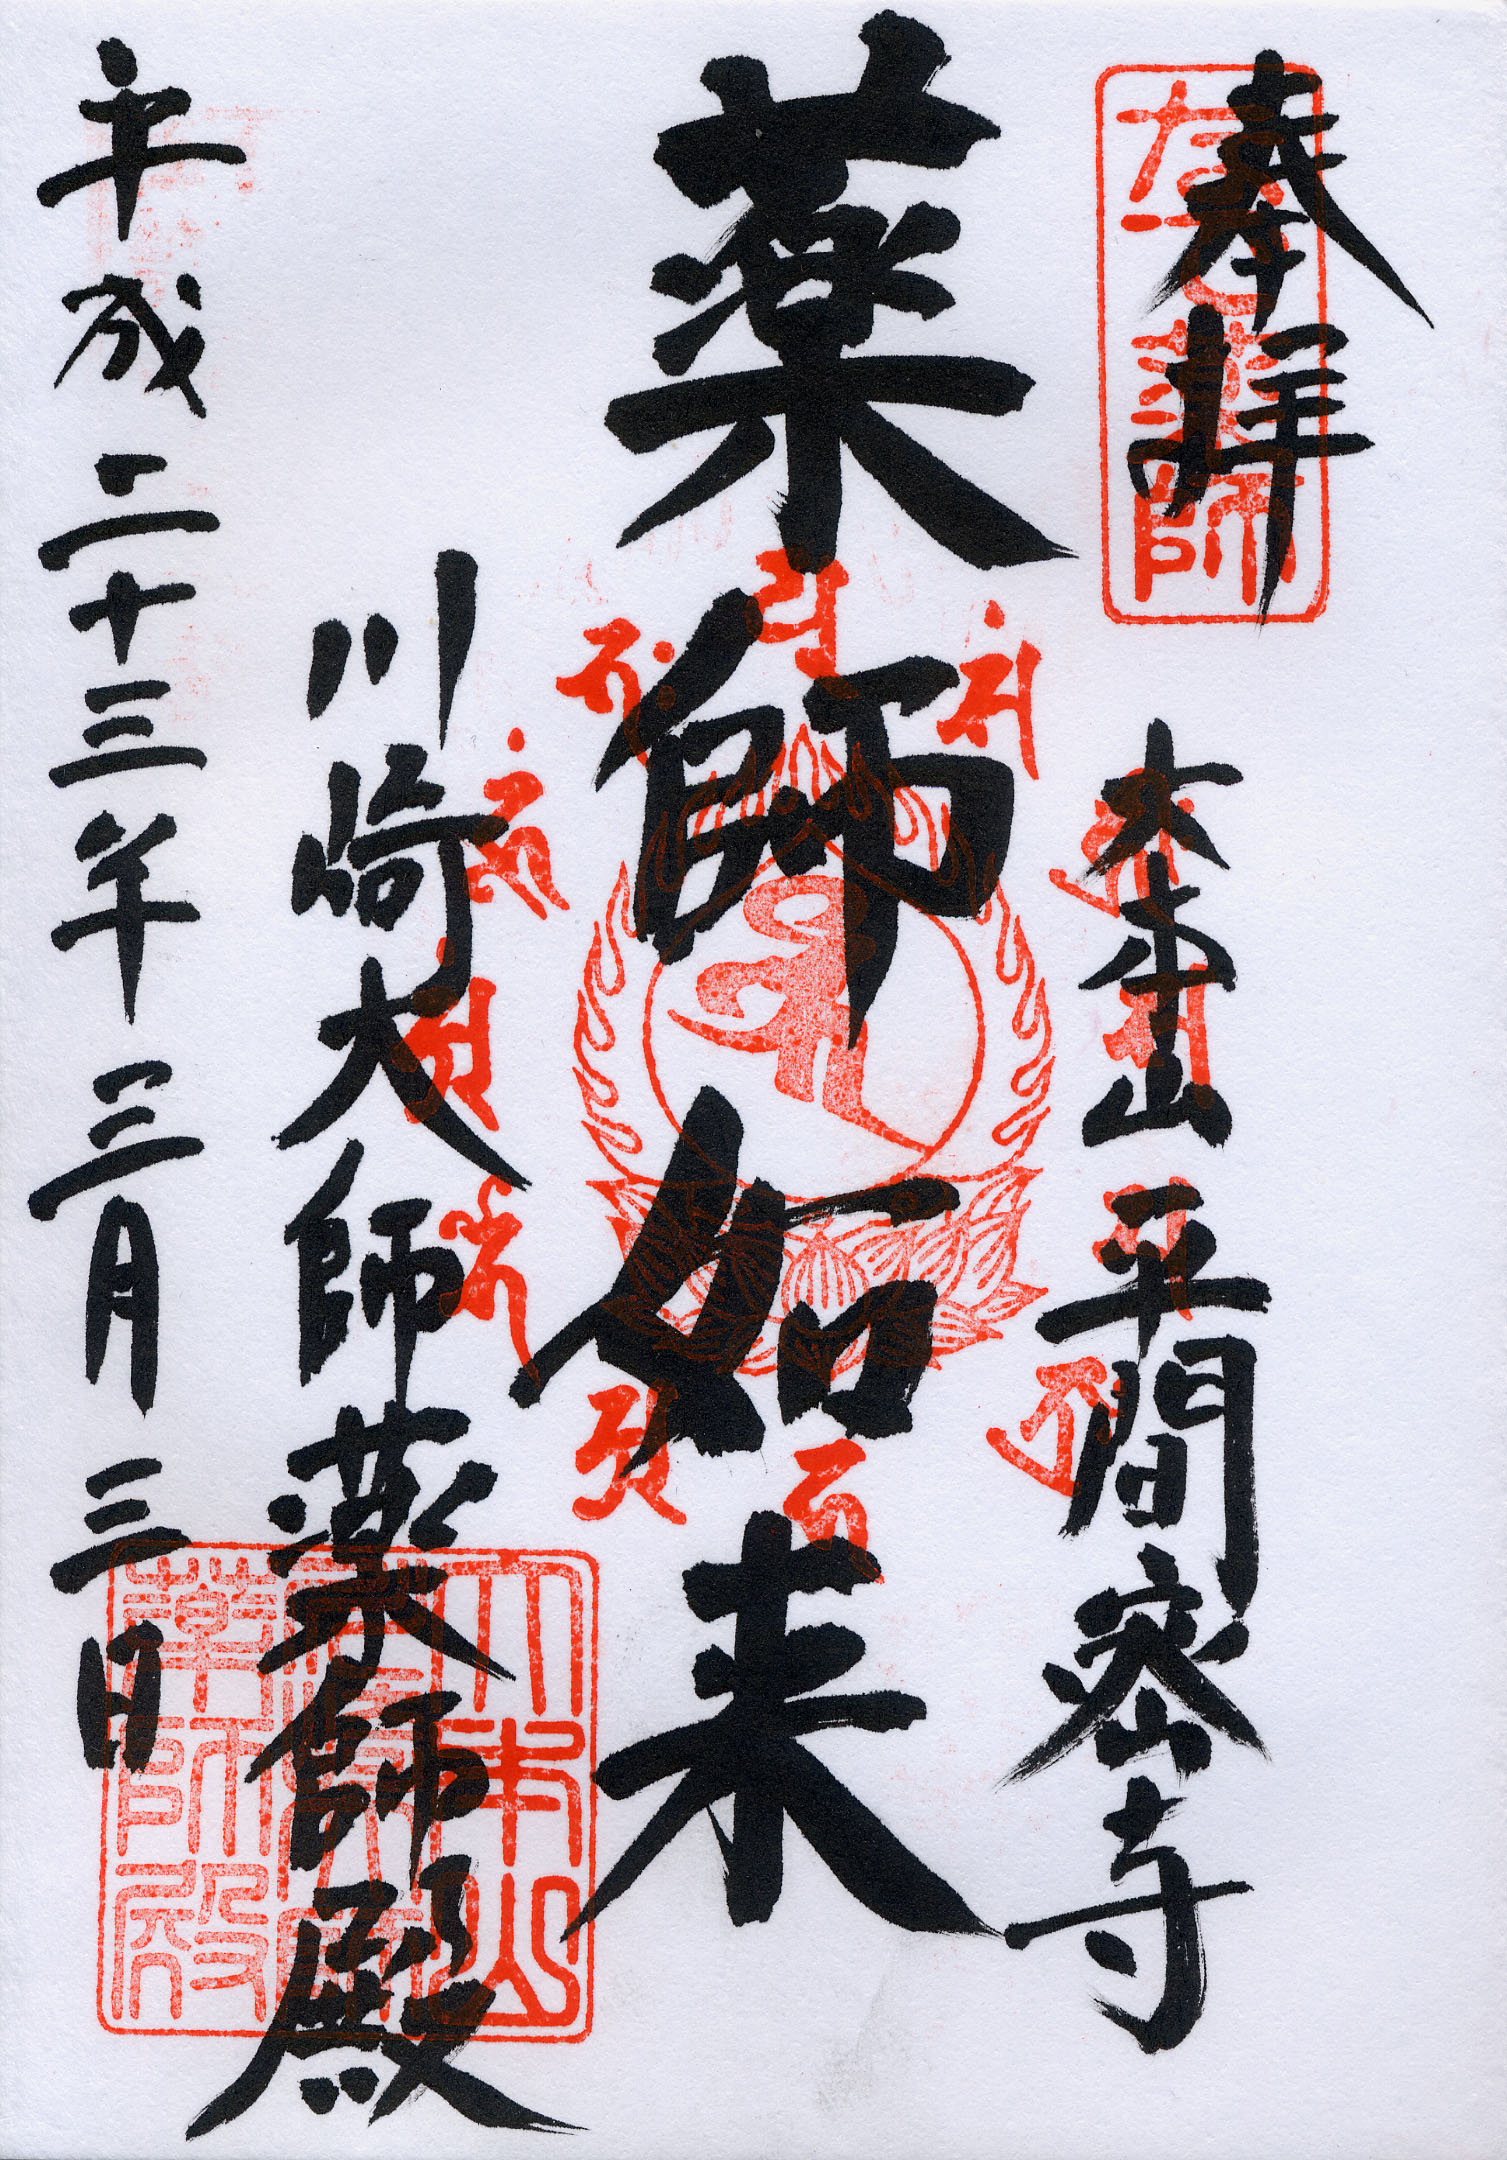 奉拝
なで薬師
大本山 平間密寺
薬師如来
川崎大師薬師殿
大本山
薬師殿
平成二十三年三月三日